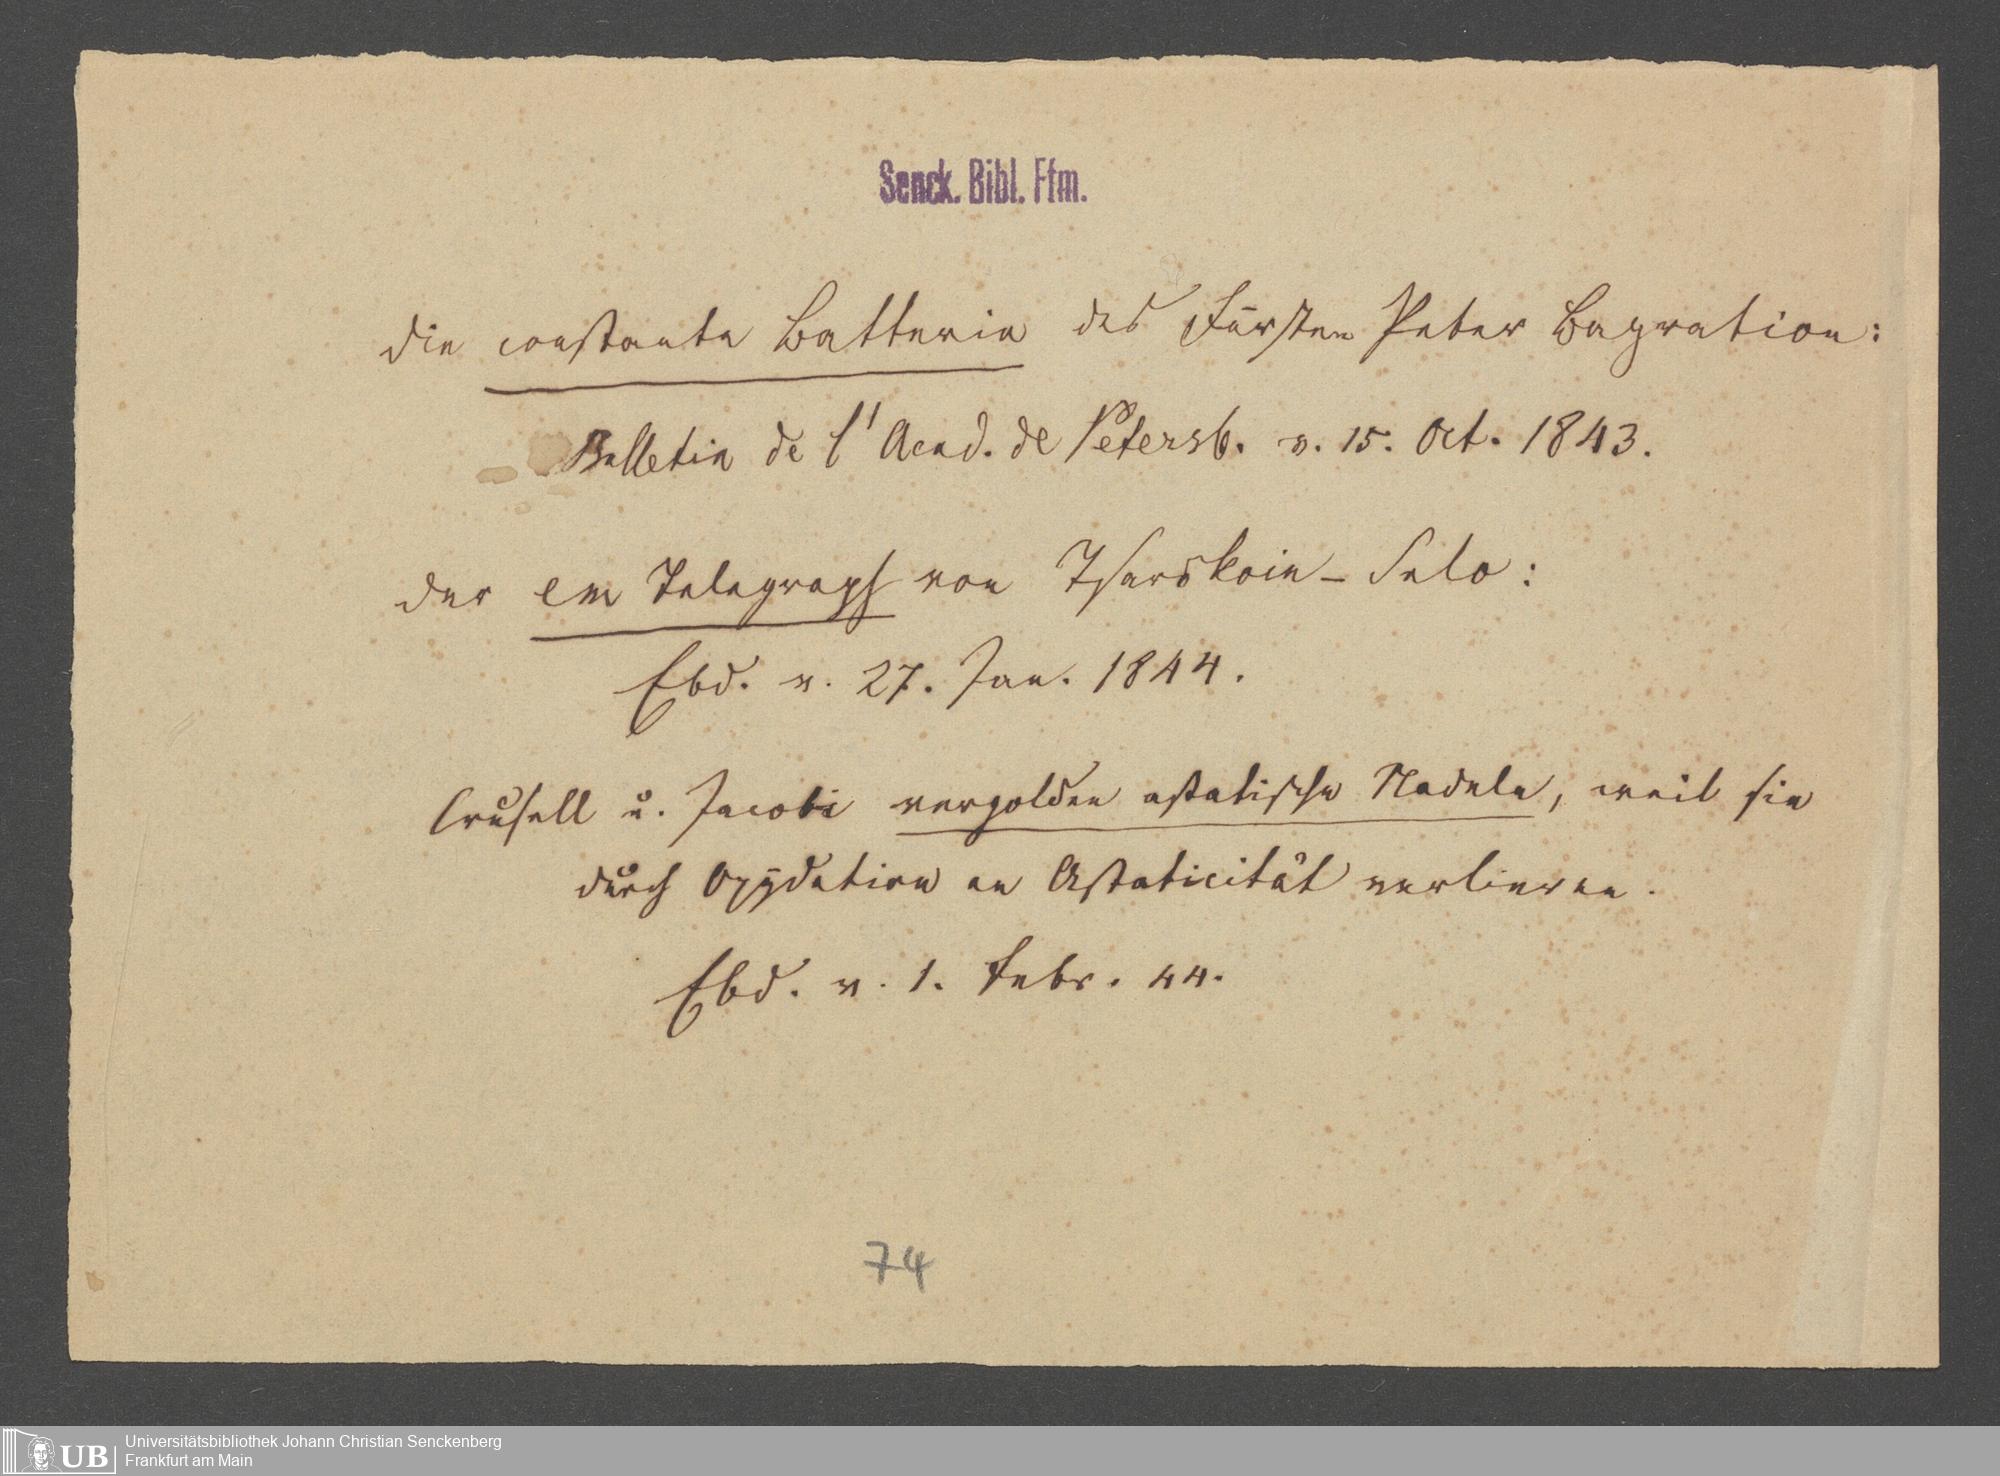 Senck. Bibl. Ffm.
die constante Batterie des Fürsten Peter Bagration:
Bulletin de l'Acad. de Petersb. v. 15. Oct. 1843.
der em Telegraph von Tsarskoie-Selo:
Ebd. v. 27. Jan. 1844.
Crusell u. Jacobi vergolden astatische Nadeln, weil sie
durch Oxydation an Astaticität verlieren.
Ebd. v. 1. Febr. 44.
74
UB
Universitätsbibliothek Johann Christian Senckenberg
Frankfurt am Main